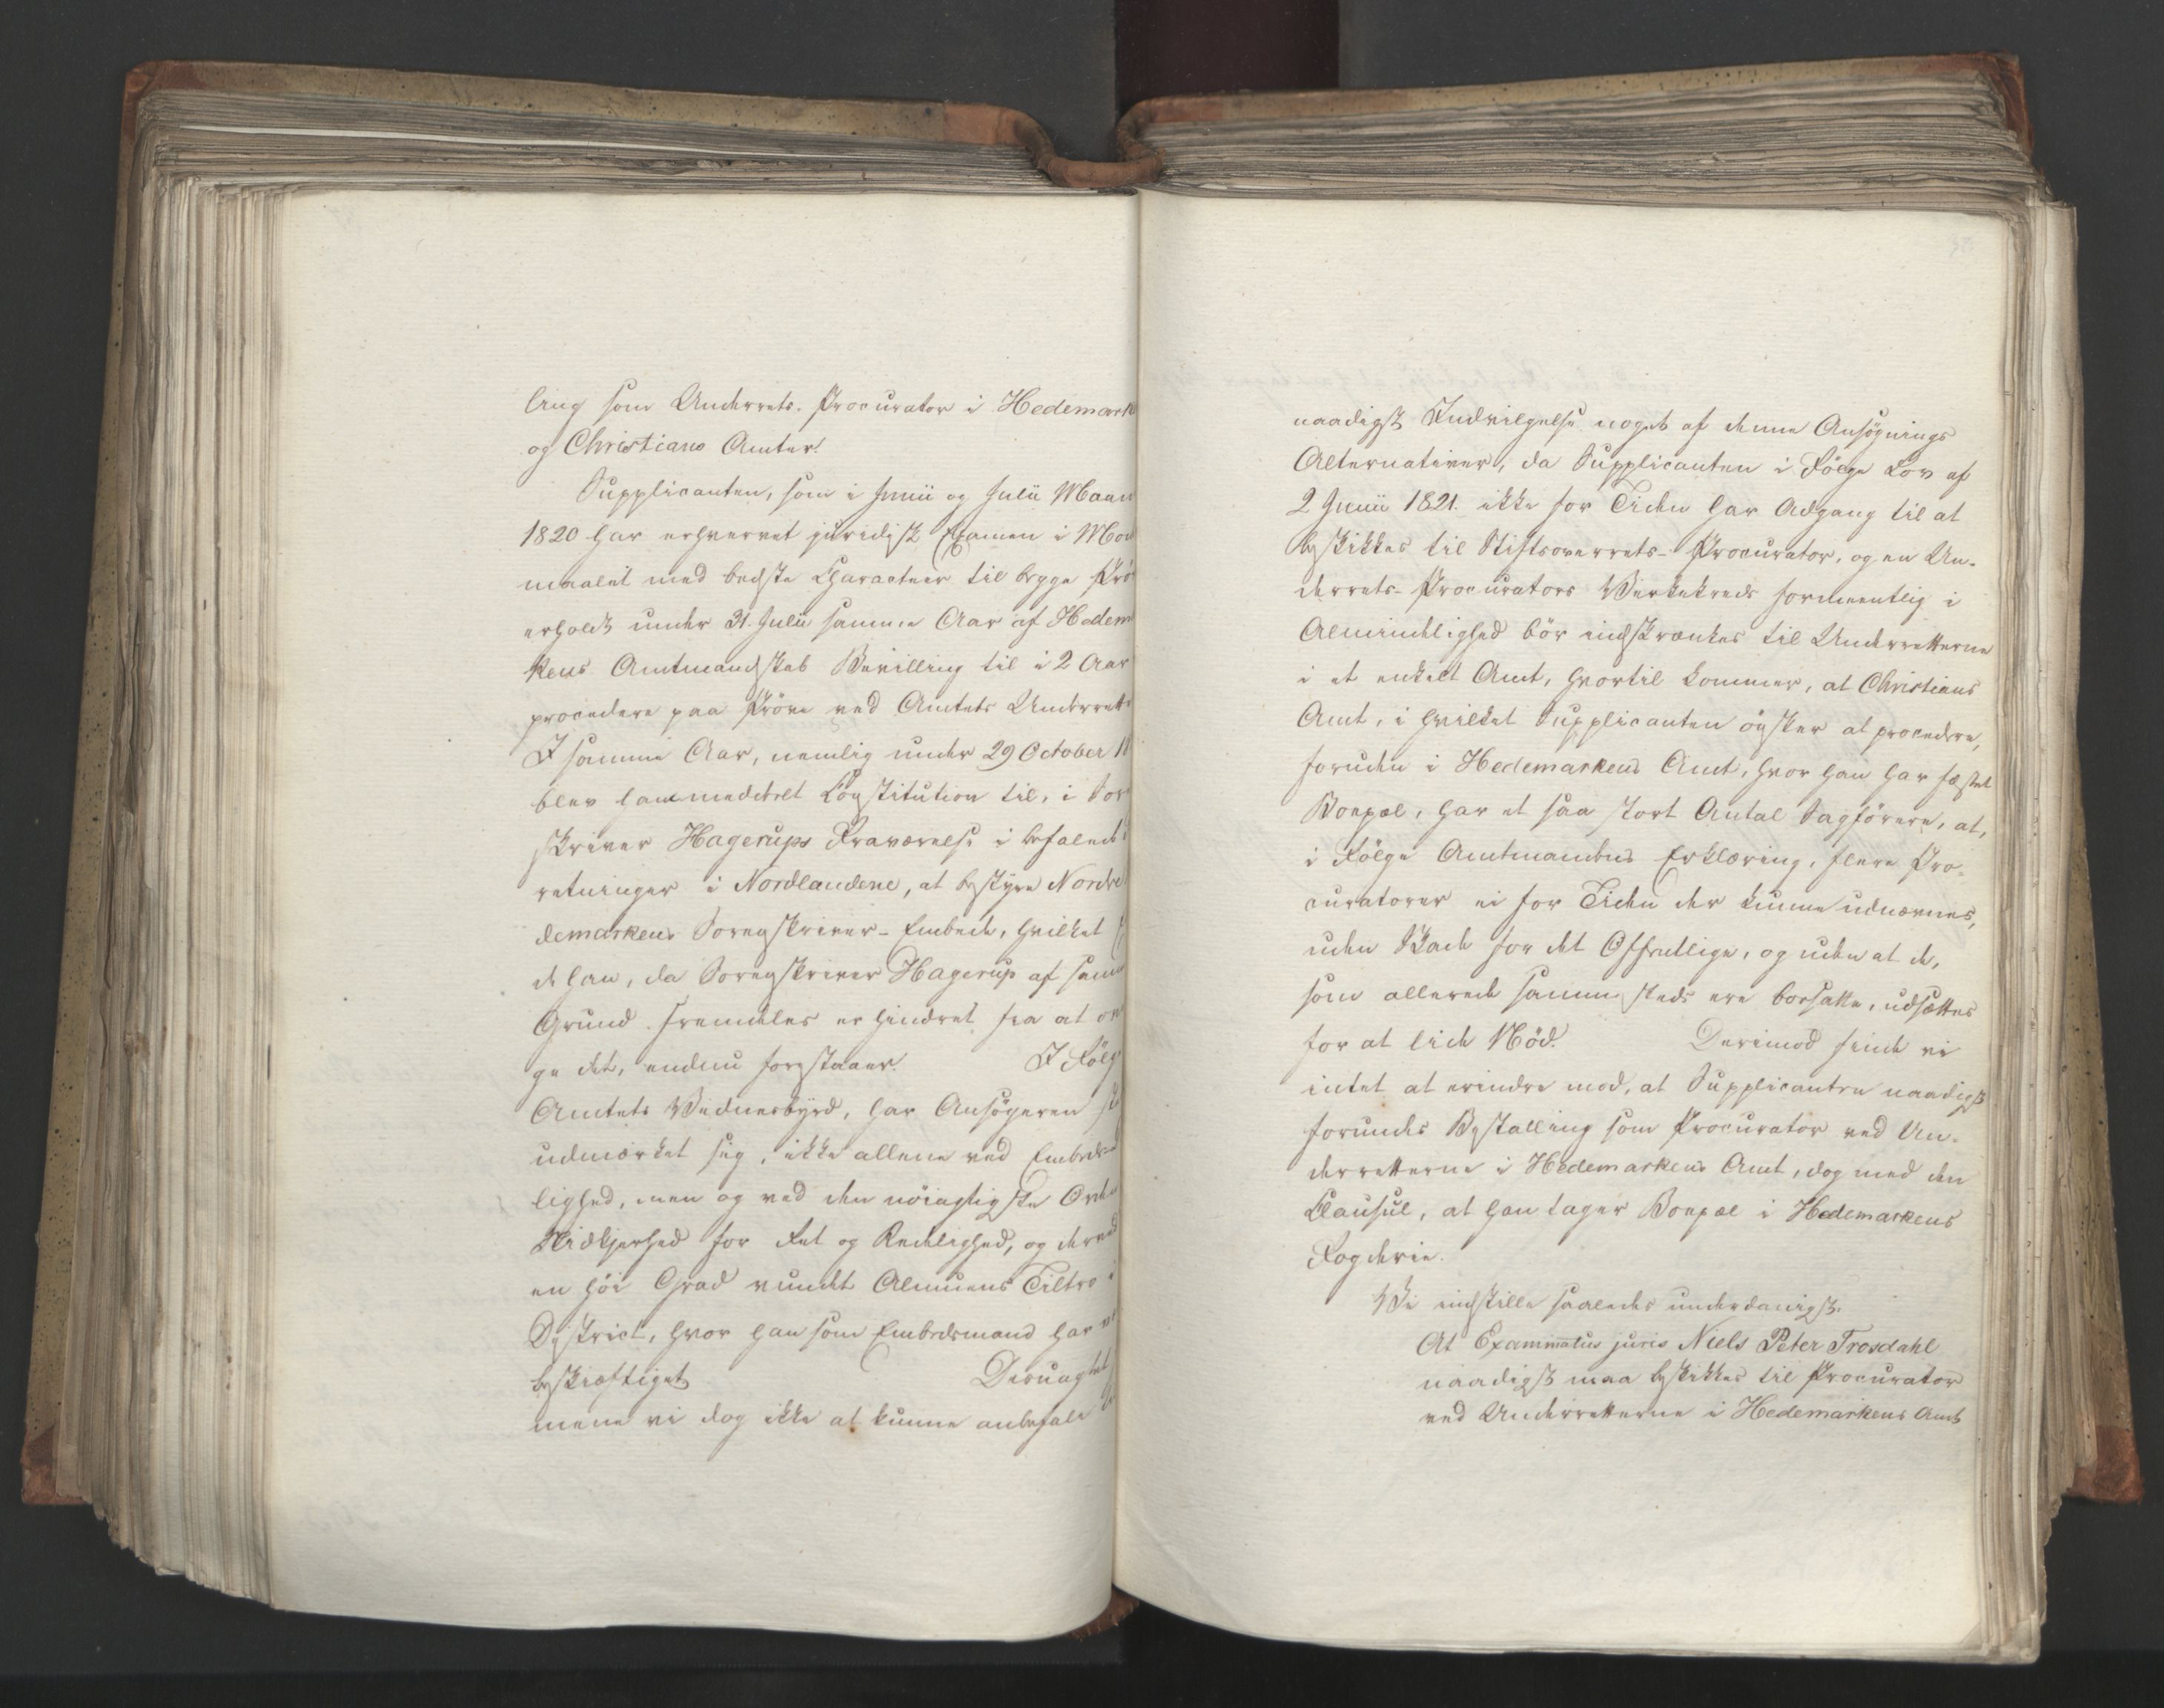 ling som Underrets-Procurator i Hedemark
og Christians Amter.
Supplicanten, som i Junii og Julii Maan
1820 har erhvervet juridisk Examen i Mod
maalet med bedste Characteer til begge Prö
erholdt under 31. Julii samme Aar af Hedem
kens Amtmandskab Bevilling til i 2 Aar
procedere paa Pröve ved Amtets Underrett
I samme Aar, nemlig under 29 October
blev ham meddeelt Constitution til, i Sor
skriver Hagerups Fraværelse i befalede
retninger i Nordlandene, at bestyre Nordre
demarkens Sorenskriver-Embede, hvilket
de han, da Sorenskriver Hagerup af samme
Grund fremdeles er hindret fra at
ge det, endnu forestaaer. I Fölg
Amtets Vidnesbyrd, har Ansögeren
udmærket sig, ikke allene ved Embeds
lighed, men og ved den nöiagtigste Orde
Nidkjerhed for Ret og Redelighed, og derved
en höi Grad vundet Almuens Tiltro i
District, hvor han som Embedsmand har
beskiæftiget Desuagtet
mene vi dog ikke at kunne anbefale
naadigst Indvilgelse noget af denne Ansögnings
Alternativer, da Supplicanten i Fölge Lov af
2 Junii 1821. ikke for Tiden har Adgang til at
beskikkes til Stiftsoverrets-Procurator, og en Un-
derrets-Procurators Virkekreds formeentlig i
Almindelighed bör indskrænkes til Underretterne
i et enkelt Amt, hvortil kommer, at Christians
Amt, i hvilket Supplicanten önsker at procedere,
foruden i Hedemarkens Amt, hvor han har fæstet
Boepæl, har et saa stort Antal Sagförere, at,
i Fölge Amtmandens Erklæring, flere Pro-
curatorer ei for Tiden der kunne udnævnes,
uden Skade for det Offentlige, og uden at de,
som allerede sammesteds ere bosatte, udsættes
for at lide Nöd. Derimod finde vi
intet at erindre mod, at Supplicanten naadigst
forundes Bestalling som Procurator ved Un-
derretterne i Hedemarkens Amt, dog med den
Clausul, at han tager Boepæl i Hedemarkens
Fogderie.
Vi indstille saaledes underdanigst:
At Examinatus juris Niels Peter Trosdahl
naadigst maa beskikkes til Procurator
ved Underretterne i Hedemarkens Amt